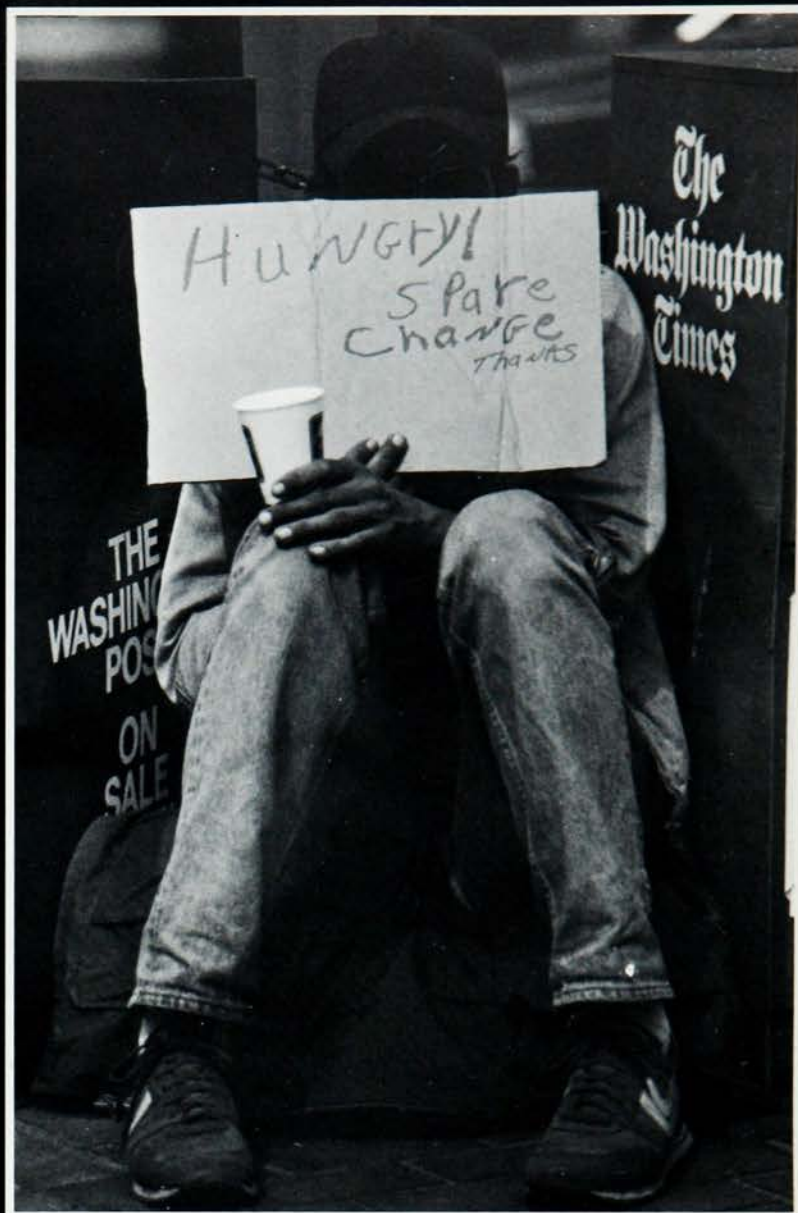 HuNGry!
SPare
ChaNGe
ThaNKS
The
Washington
Times
THE
WASHING
POS
ON
SALE